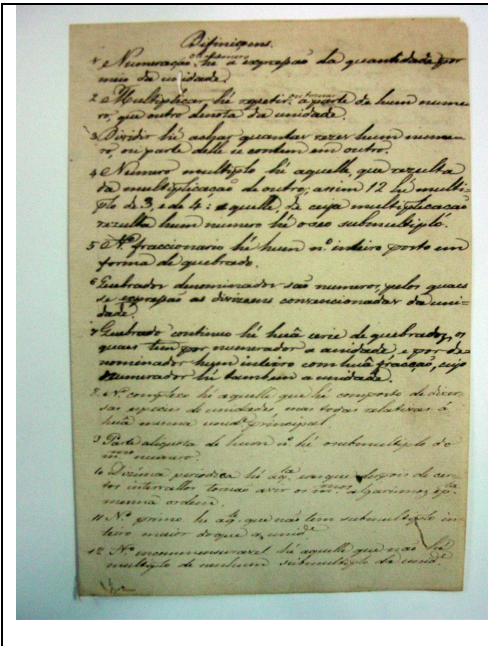 Difiniçoens.
1 Numeração hé a expreção da quantidade por
meio da unidade.
2 Multiplicar, hé repetir a parte de hum nume-
ro, que outro denota da unidade.
3 Dividir hé achar quantas vezes hum nume-
ro, ou parte delle se contem em outro.
4 Numero multiplo hé aquelle, que rezulta
da multiplicação de outro; assim 12 hé multi-
plo de 3, e de 4: e aquelle, de cuja multiplicação
rezulta hum numero hé o seo submultiplo.
5 N.º fraccionario hé hum n.º inteiro posto em
forma de quebrado.
6 Quebrados denominador são numeros, pelos quaes
se as divizoens convencionadas da uni-
dade.
7 Quebrado continuo hé huã cerie de quebrados, os
quaes tem por numerador a unidade, e por de-
nominador hum inteiro com huã fracção, cujo
numerador hé tambem a unidade.
8 N.º complexo hé aquelle que hé composto de diver-
sas especies de unidades, mas todas relativas á
huã mesma unid.e principal
9 Parte aliquota de hum n.º hé o submultiplo do
m.mo numero.
10 Dizima periodica hé aq.la em que depois de cer-
tos intervallos tornão a vir os m.mos algarismos p.la
mesma ordem.
11 N.º primo he aq.le que não tem submultiplo in-
teiro maior do que a unid.e
12 N.º incommensuravel hé aquelle que não hé
multiplo de nenhum submultiplo da unid.e